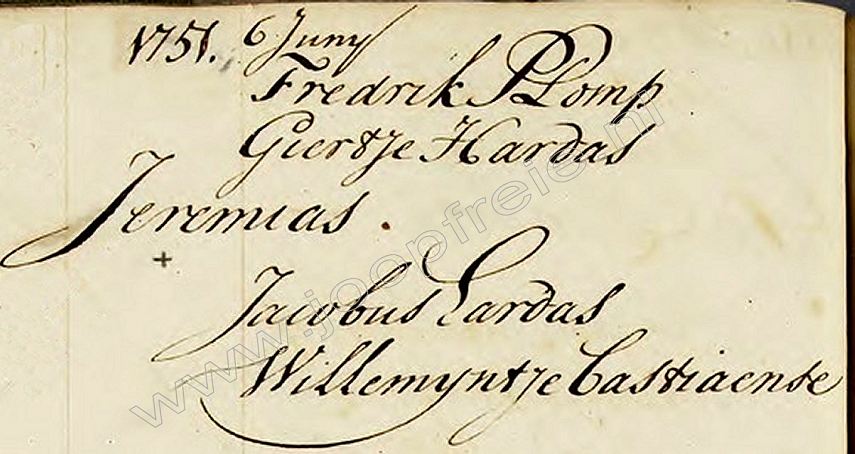 1751. 6 Juny
Fredrik PLomp
Giertje Hardas
Jeremias.
+
Jacobus Lardas
Willemyntje Bastiaense
www.joopfreie.nl